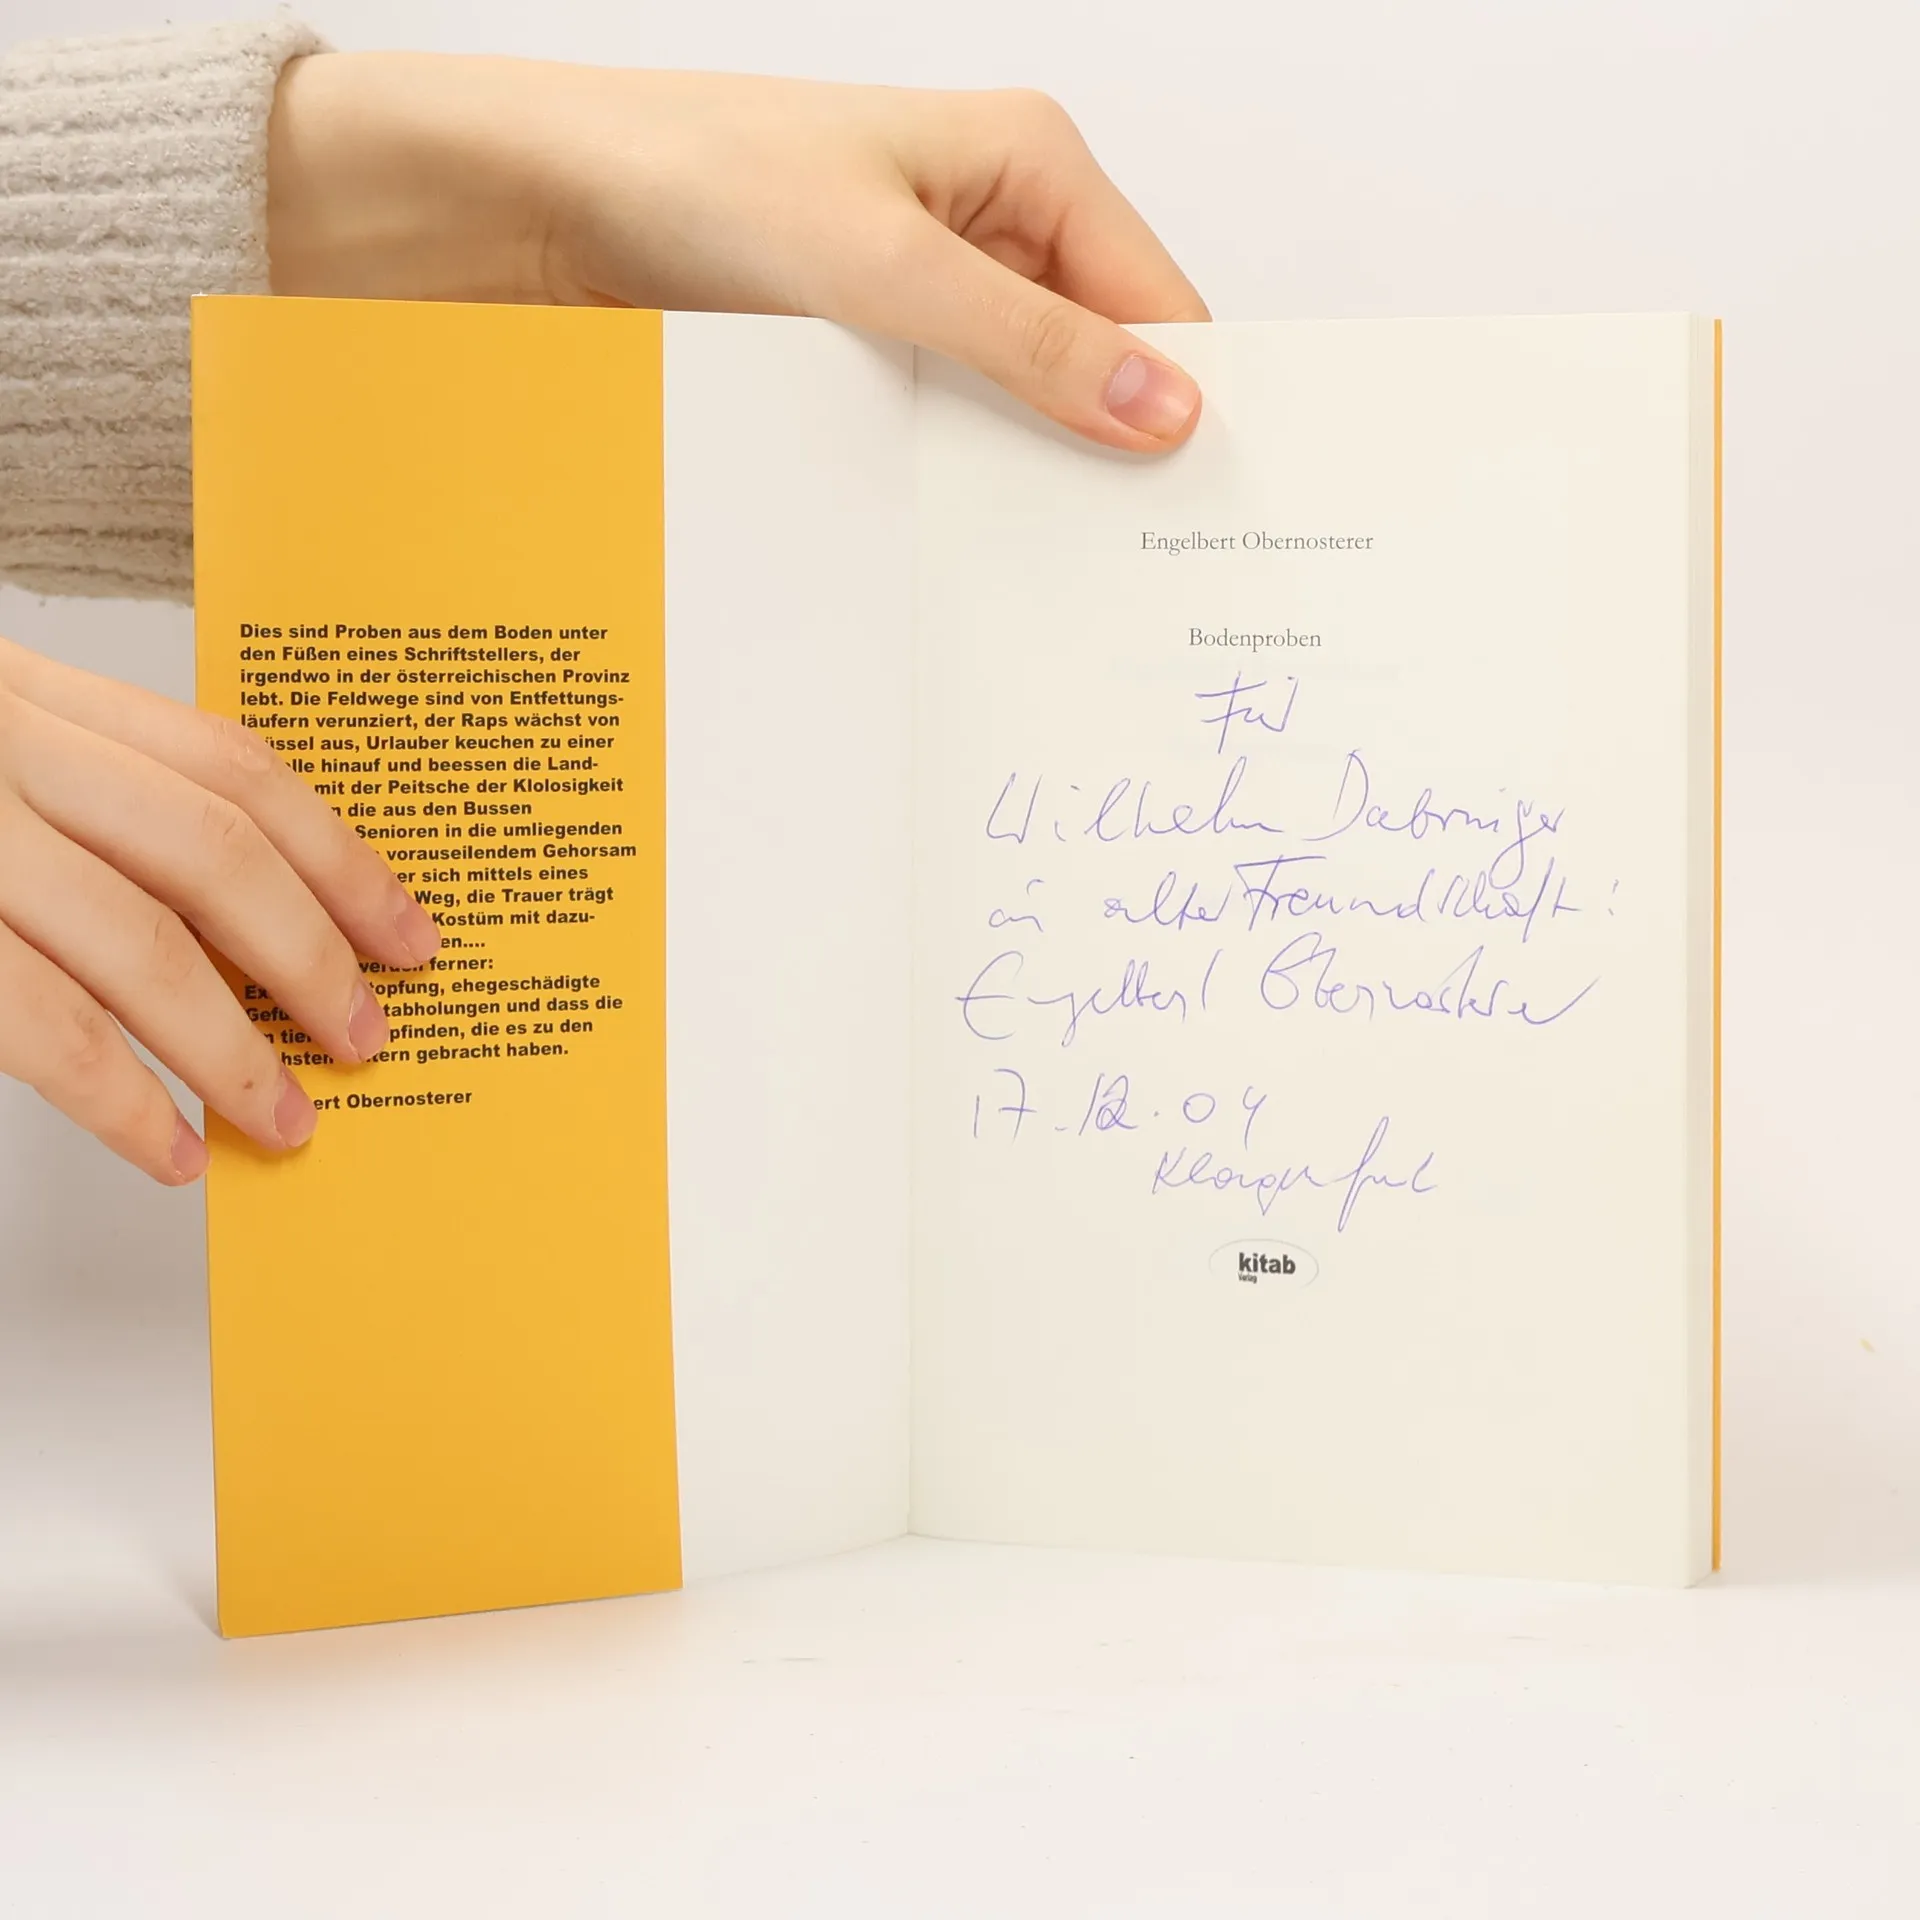 Dies sind Proben aus dem Boden unter
den Füßen eines Schriftstellers, der
irgendwo in der österreichischen Provinz
lebt. Die Feldwege sind von Entfettungs-
läufern verunziert, der Raps wächst von
üssel aus, Urlauber keuchen zu einer
lle hinauf und beessen die Land-
mit der Peitsche der Klolosigkeit
die aus den Bussen
Senioren in die umliegenden
vorauseilendem Gehorsam
er sich mittels eines
Weg, die Trauer trägt
Kostüm mit dazu-
en....
ferner:
Ex topfung, ehegeschädigte
Gefü tabholungen und dass die
n tie pfinden, die es zu den
hsten tern gebracht haben.
ert Obernosterer
Engelbert Obernosterer
Bodenproben
Für
Wilhelm Dabringer
in alter Freundschaft:
Engelbert Obernosterer
17.12.04
Klagenfurt
kitab
Verlag